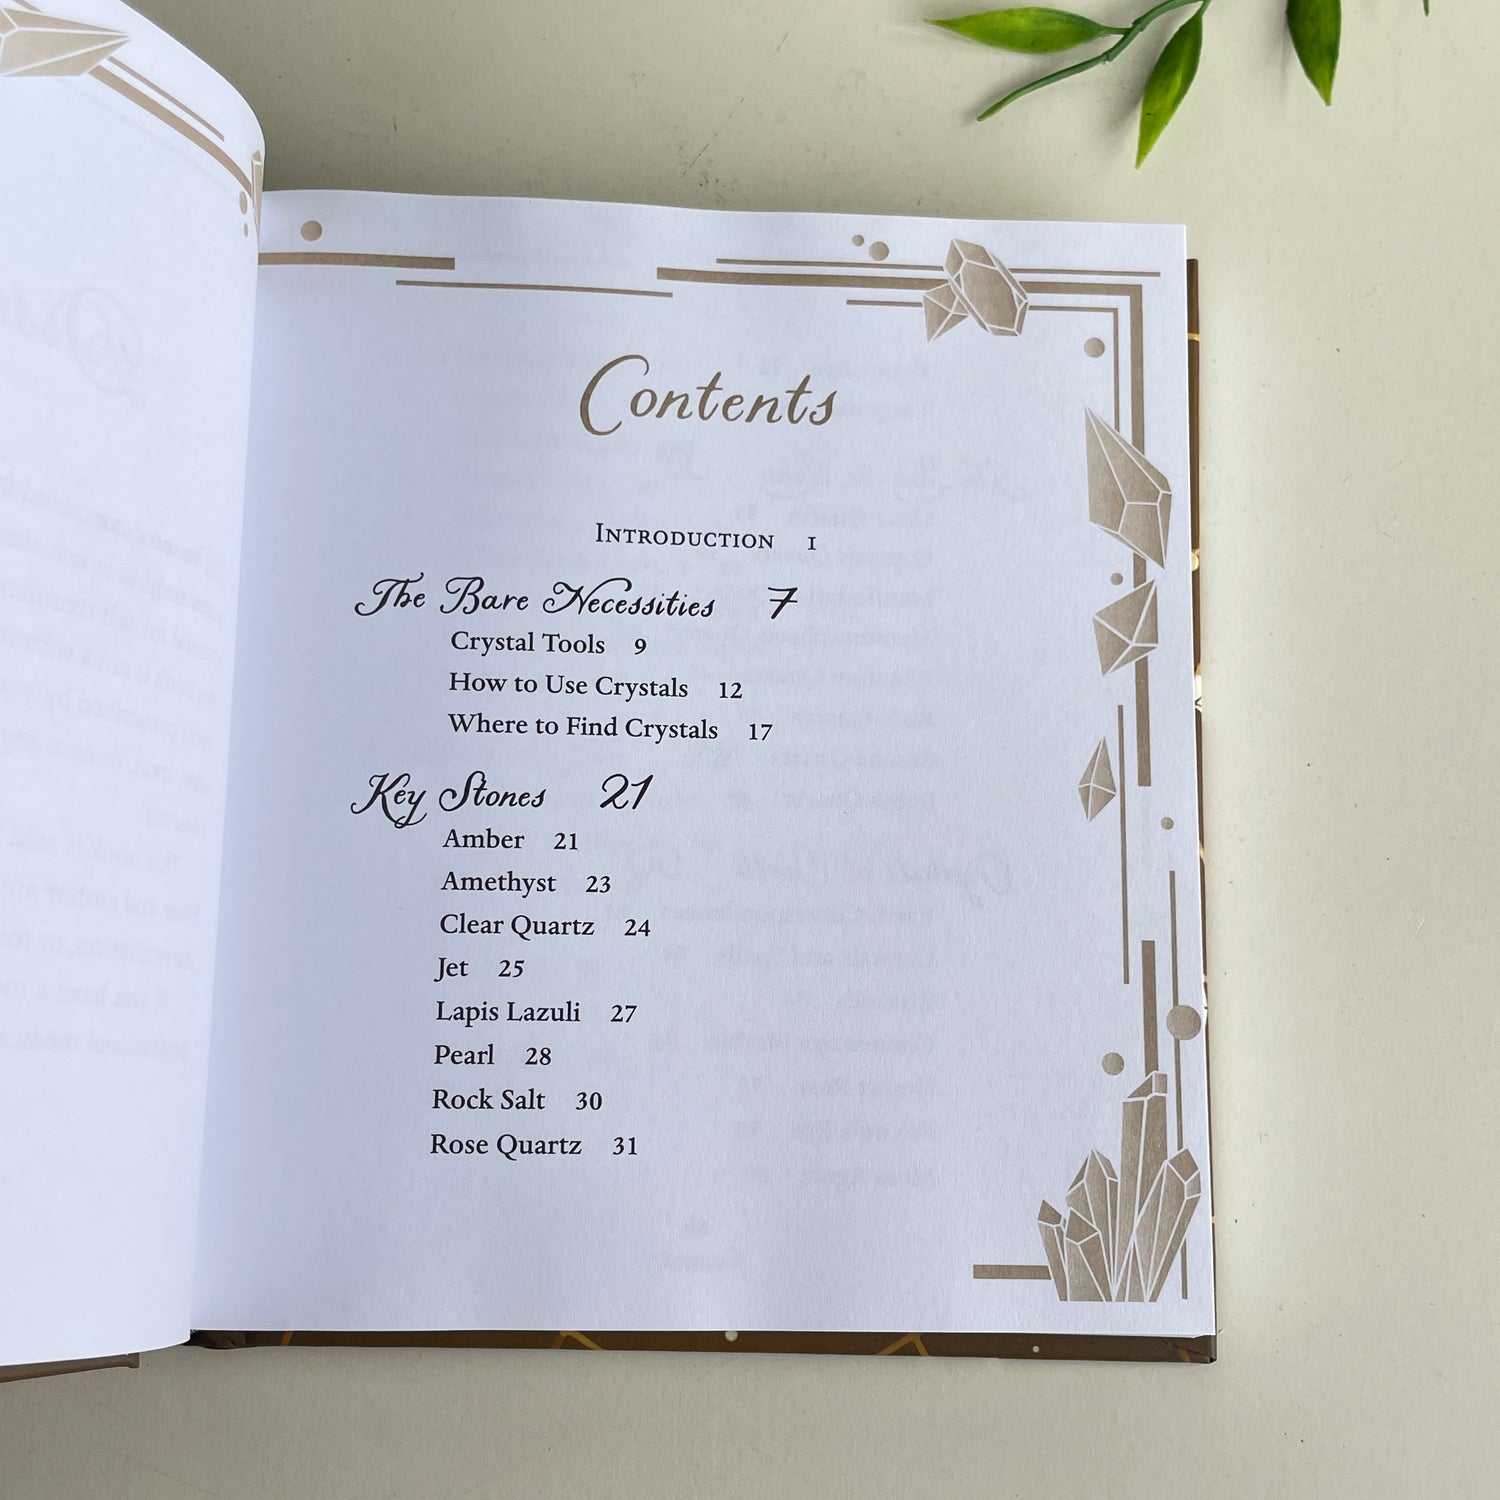 Contents
INTRODUCTION 1
The Bare Necessities 7
Crystal Tools 9
How to Use Crystals 12
Where to Find Crystals 17
Key Stones 21
Amber 21
Amethyst 23
Clear Quartz 24
Jet 25
Lapis Lazuli 27
Pearl 28
Rock Salt 30
Rose Quartz 31